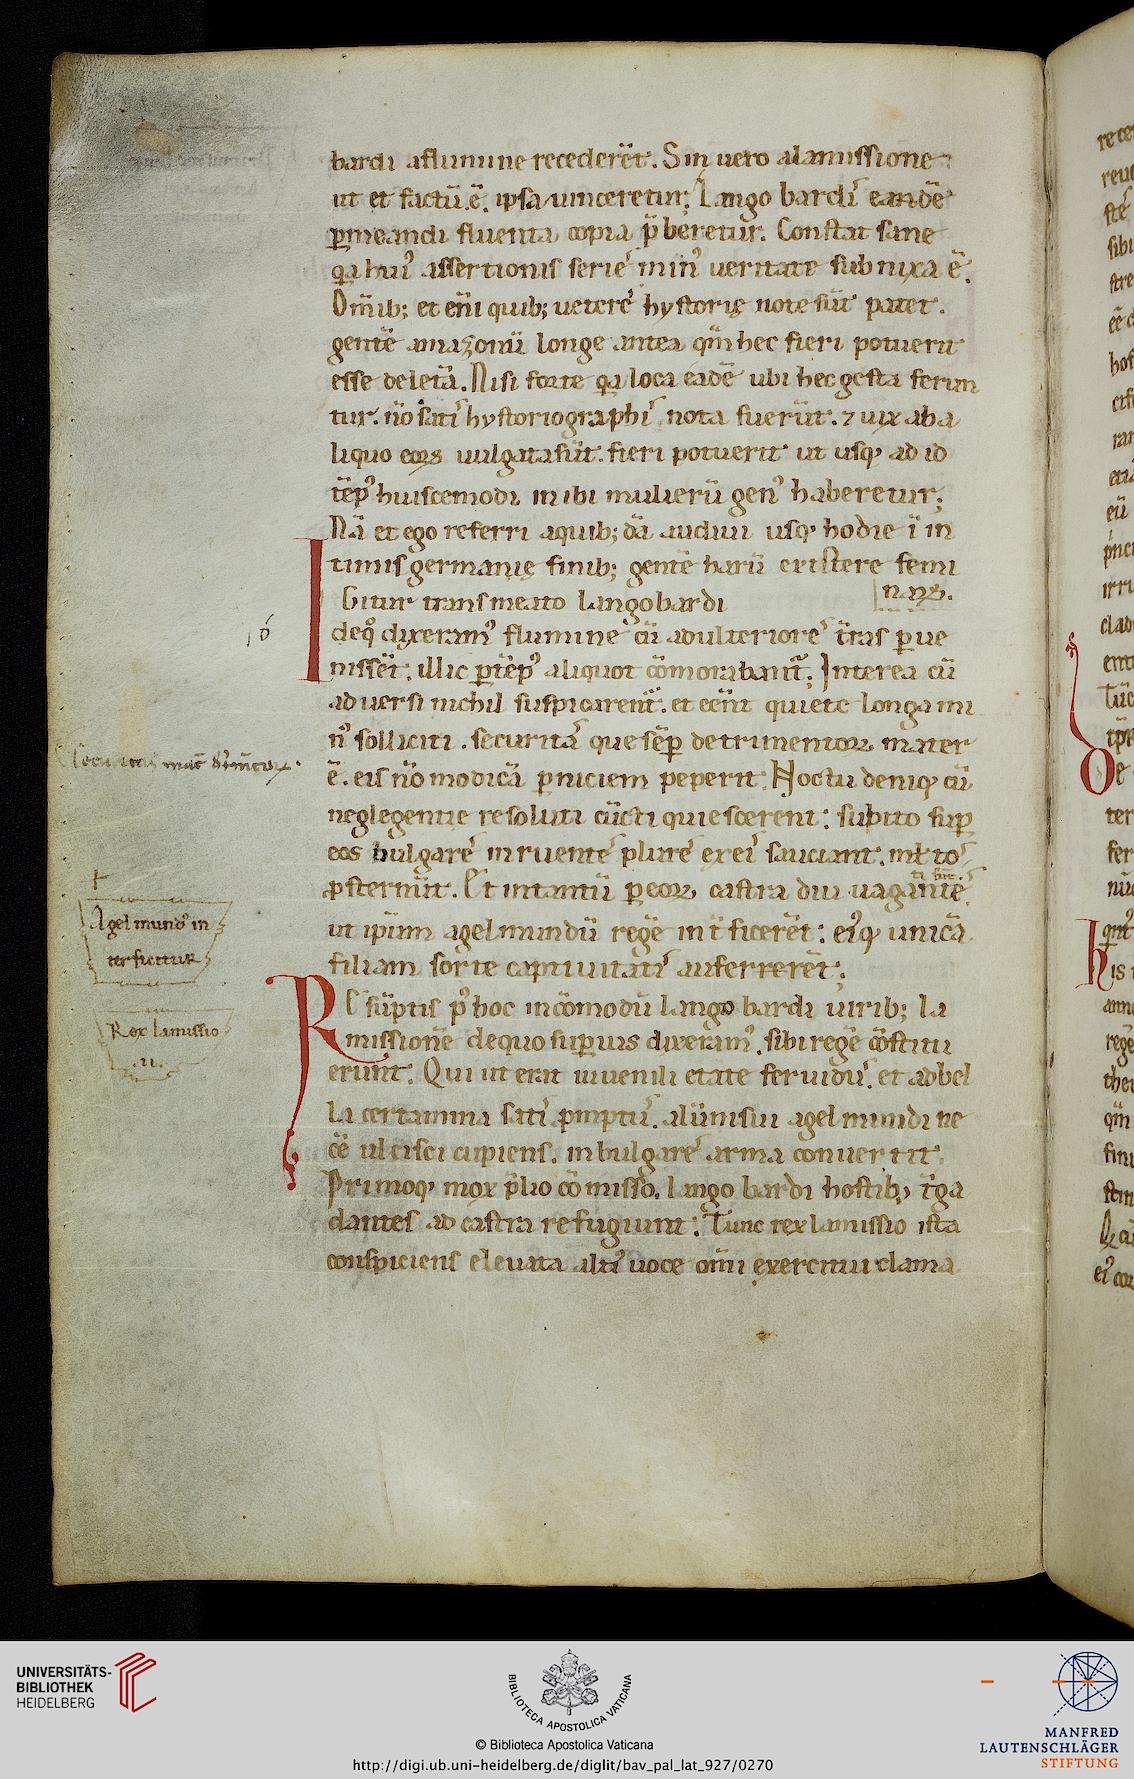 bardi a flumine recederēt. Sin uero a lamissione
ut et factū.ē. ipsa uinceretur; Langobardis eandē
p̄meandi fluenta copia p̄beretur. Constat sane
qa huiꝰ assertionis series minꝰ ueritate subnixa ē.
Om̄ib; et en̄i quib; ueteres hystorię note sūt patet.
gentē amazonū longe antea qm̄ hec fieri potuerit
esse deletā. Nisi forte qa loca eadē ubi hec gesta ferun
tur. nō satis hystoriographis nota fuerūt. ⁊ uix ab a
liquo eoꝝ uulgata sūt. fieri potuerit ut usq; ad id
tēpꝰ huiscemodi inibi mulierū genꝰ haberetur;
Nā et ego referri a quib; dā audiui usq; hodie ī in
timis germanię finib; gentē harū existere femi
naꝝ.
Igitur transmeato langobardi
de qͦ dixeramꝰ flumine cū ad ulteriores t̄ras ꝑue
nissēt. illic ꝑ tēpꝰ aliquot cōmorabant̄; Interea cū
aduersi nichil suspicarent̄. et eēnt quiete longa mi
nꝰ solliciti. securitas que sēꝑ detrimentoꝝ mater
ē. eis nō modicā ꝑniciem peperit. Noctu deniq; cū
neglegentie resoluti cūcti quiescerent: subito suꝑ
eos bulgares inruentes plures ex eis sauciant. mltos
ꝓsternūt. Et in tantū ꝑ eoꝝ castra diu uagantes
ut ipsum agelmundū regē int̄ficerēt: eiꝰq; unicā
filiam sorte captiuitatis auferrerēt.
Resūptis pꝰ hoc incōmodū langobardi uirib; la
missionē de quo suꝑius dixeramꝰ. sibi regē cōstitu
erunt. Qui ut erat iuuenili etate feruidus. et ad bel
la certamina satis ꝓmptus. alūni sui agelmundi ne
cē ulcisci cupiens. in bulgares arma conuertit.
Primoq; mox p̄lio cōmisso. langobardi hostib; t̄ga
dantes ad castra refugiunt. Tunc rex lamissio ista
conspiciens eleuata altiꝰ uoce om̄i exercitui clama
Agelmundꝰ in
terficitur
Rex lamissio
.ii.
UNIVERSITÄTS-
BIBLIOTHEK
HEIDELBERG
BIBLIOTECA APOSTOLICA VATICANA
© Biblioteca Apostolica Vaticana
http://digi.ub.uni-heidelberg.de/diglit/bav_pal_lat_927/0270
MANFRED
LAUTENSCHLÄGER
STIFTUNG